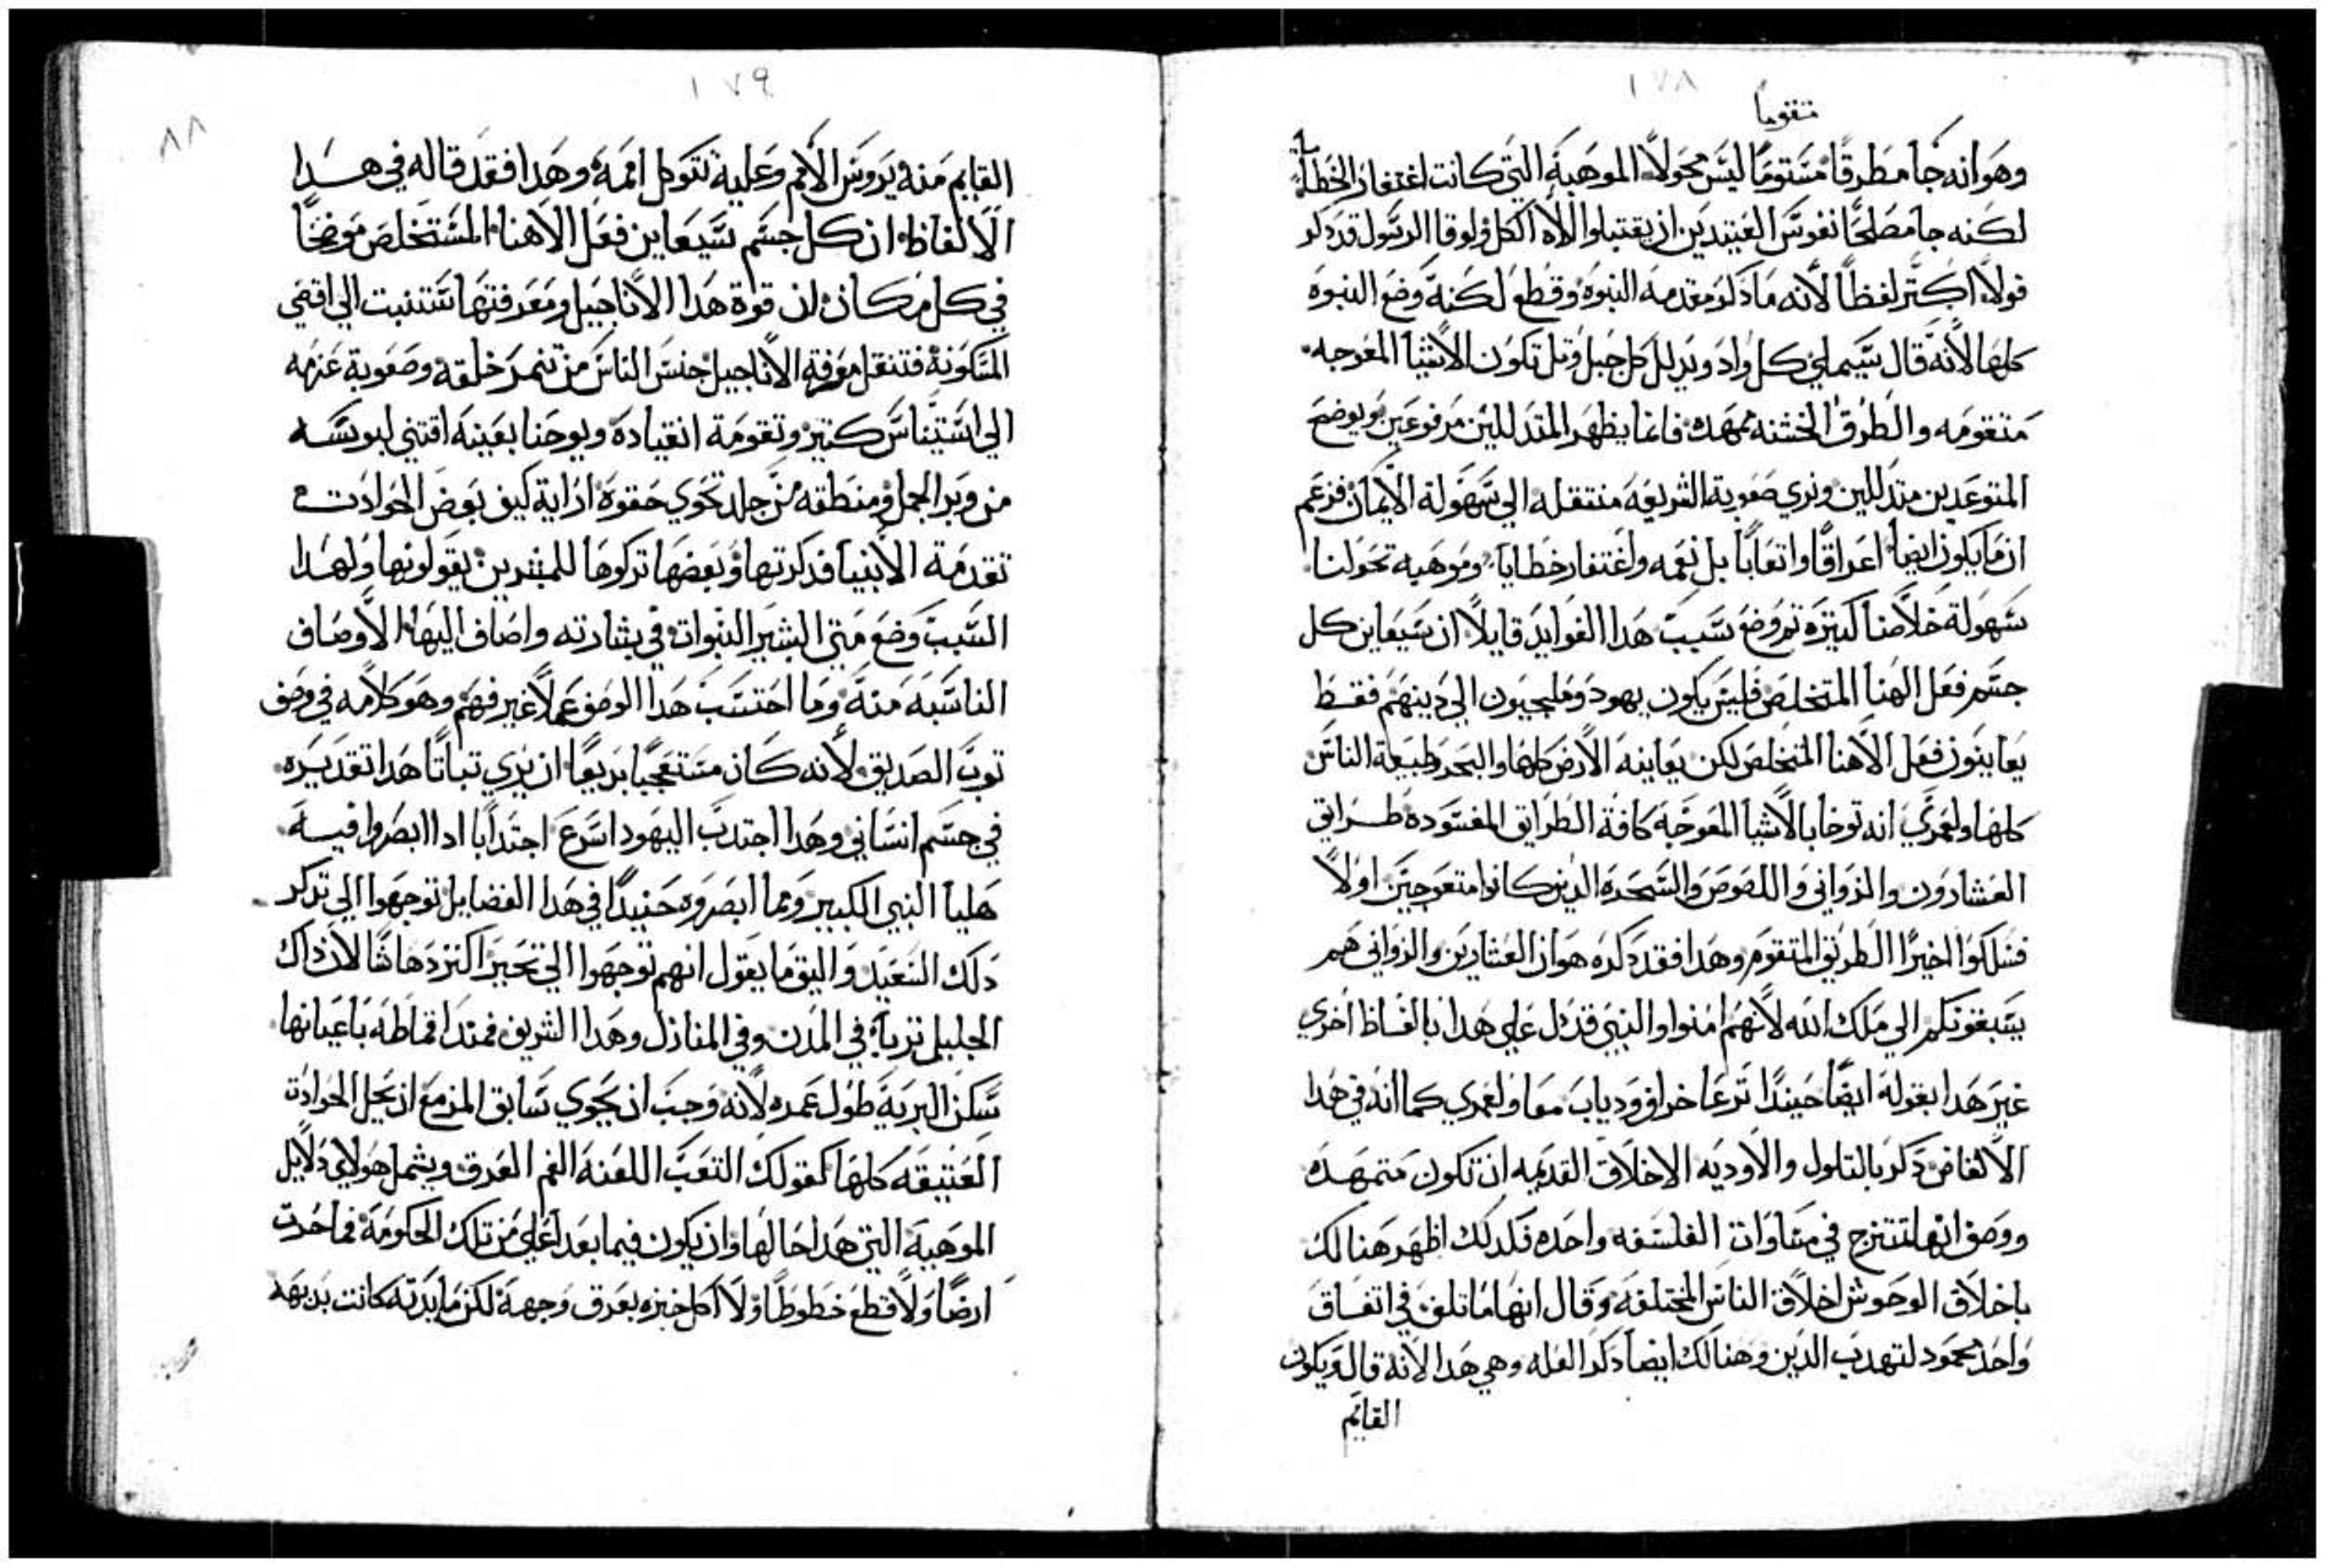 ١٧٨
متقوماً
وهو انه جا مطرقاً مستوماً ليس مخولاً الموهبة التي كانت اغتفار الخطايا
لكنه جا مصلحاً نفوس العتيدين ان يقتبلوا الاه الكل ولوقا الرسول قد ذكر
قولاً اكتر لفظاً لانه ما ذكر مقدمه النبوه وقطع لكنه وضع النبوه
كلها لانه قال سيملي كل واد ويدلل كل جبل وتل تكون الاشيا المعوجه
متقومه والطرق الخشنه ممهده فانما يظهر المتدللين مرفوعين ويوضح
المتوعدين متدللين ونري صعوبة الشريعه منتقله الي سهولة الايمان فزعم
ان ما يكون ايضاً اعراقاً واتعاباً بل نعمه واغتفار خطايا وموهبه تخولنا
سهولة خلاصنا كتيره تم وضع سبب هدا الفوايد قايلاً ان سيعاين كل
جسم فعل الهنا المتخلص فليس يكون يهود ودخيليون الي دينهم فقط
يعاينون فعل الاهنا المتخلص لكن يعاينه الارض كلها والبحر وطبيعة الناس
كلها ولعمري انه توخا بالاشيا المعوجه كافة الطرايق المفسوده طرايق
العشارون والزواني واللصوص والسحره الدين كانوا متعوجين اولاً
فسلكوا اخيراً الطريق المتقوم وهدا فقد دكره هو ان العشارين والزواني هم
يسبقونكم الي ملك الله لانهم امنوا والنبي قد دل علي هدا بالفاظ اخري
غير هدا بقوله ايضاً حينيداً ترعا خراف ودياب معا ولعمري كما انه في هدا
الالفاض دكر بالتلول والاوديه الاخلاق القديمه ان تكون متمهده
ووصف انها تمتزج في مساوات الفلسفه واحده فلدلك اظهر هنالك
باخلاق الوحوش اخلاق الناس المختلفه وقال انها ماتلف في اتفاق
واحد محمود لتهدب الدين وهنالك ايضاً دكر العله وهي هدا لانه قال ويكون
القايم
١٧٩
٨٨
القايم منه يروس الامم وعليه تتوكل اممه وهدا فقد قاله في هدا
الالفاظ ان كل جسم سيعاين فعل الاهنا المستخلص موضحاً
في كل مكان لان قوة هدا الاناجيل ومعرفتها ستنبت الي اقتي
المسكونة فتنقل معرفة الاناجيل جنس الناس من تنمر خلقه وصعوبة عزمه
الي استيناس كتير وتقومة انقياده ويوحنا بعينه اقتني لبوسه
من وبر الجمل ومنطقه من جلد تحوي حقوه ارايت كيف بعض الحوادت
تقدمة الانبيا فدكرتها وبعضها تركوها للمبشرين يقولونها ولهدا
السبب وضع متي البشير النبوات في بشارته واضاف اليها الاوصاف
الناسبه منه وما احتسب هدا الوصف عملاً غير فهم وهو كلامه في وصف
توب الصديق لانه كان مستعجباً بريعاً ان يري تباتاً هدا تقديره
في جسم انساني وهدا اجتدب اليهود اسرع اجتداباً ادا ابصروا فيه
هليا النبي الكبير وبما ابصروه حنيداً في هدا الفضايل توجهوا الي تدكر
دلك السعيد واليق ما يقول انهم توجهوا الي تحير اكتر دهاشاً لان داك
الجليل تربا في المدن وفي المنازل وهدا الشريف فمند اقماطه باعيانها
سكن البرية طول عمره لانه وجب ان يحوي سابق المزمع ان يحل الحوادت
العتيقه كلها كقولك التعب اللعنة الغم العرق ويشمل هولاي دلايل
الموهبة التي هدا حالها وان يكون فيما بعد اعلي من تلك الحكومة فما حرت
ارضاً ولا قطع خطوطاً ولا اكل خبزه بعرق وجهه لكن مايدته كانت بديهه